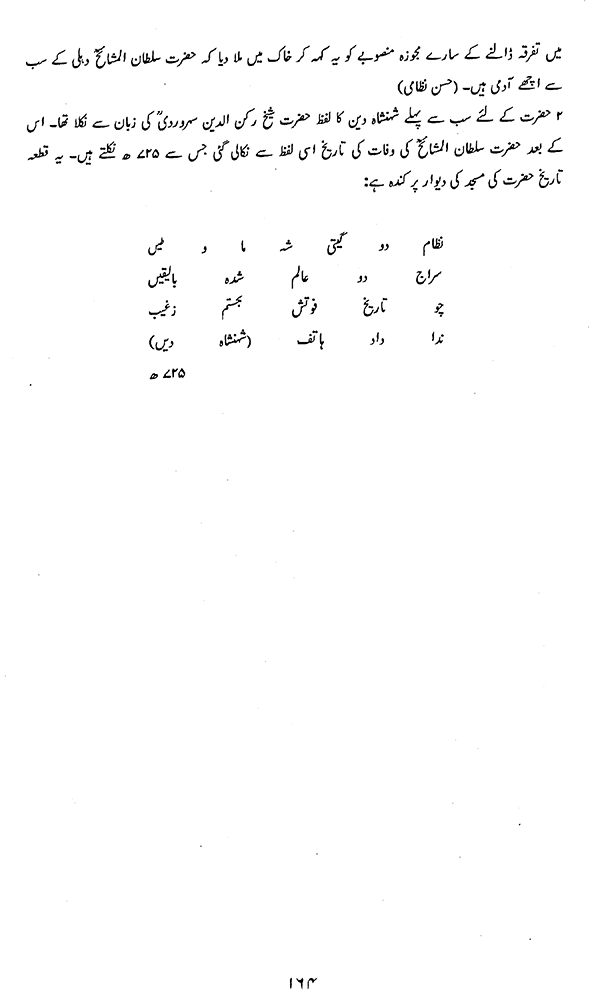 میں تفرقہ ڈالنے کے سارے مجوزہ منصوبے کو یہ کہہ کر خاک میں ملا دیا کہ حضرت سلطان المشائخؒ دہلی کے سب
سے اچھے آدمی ہیں۔ (حسن نظامی)
۲ حضرت کے لئے سب سے پہلے شہنشاہ دین کا لفظ حضرت شیخ رکن الدین سہروردیؒ کی زبان سے نکلا تھا۔ اس
کے بعد حضرت سلطان المشائخؒ کی وفات کی تاریخ اسی لفظ سے نکالی گئی جس سے ۷۲۵ ھ نکلتے ہیں۔ یہ قطعہ
تاریخ حضرت کی مسجد کی دیوار پر کندہ ہے:
نظام دو گیتی شہ ما و طیں
سراج دو عالم شدہ بالیقیں
چو تاریخ فوتش بجستم زغیب
ندا داد ہاتف (شہنشاہ دیں)
۷۲۵ ھ
۱۶۴